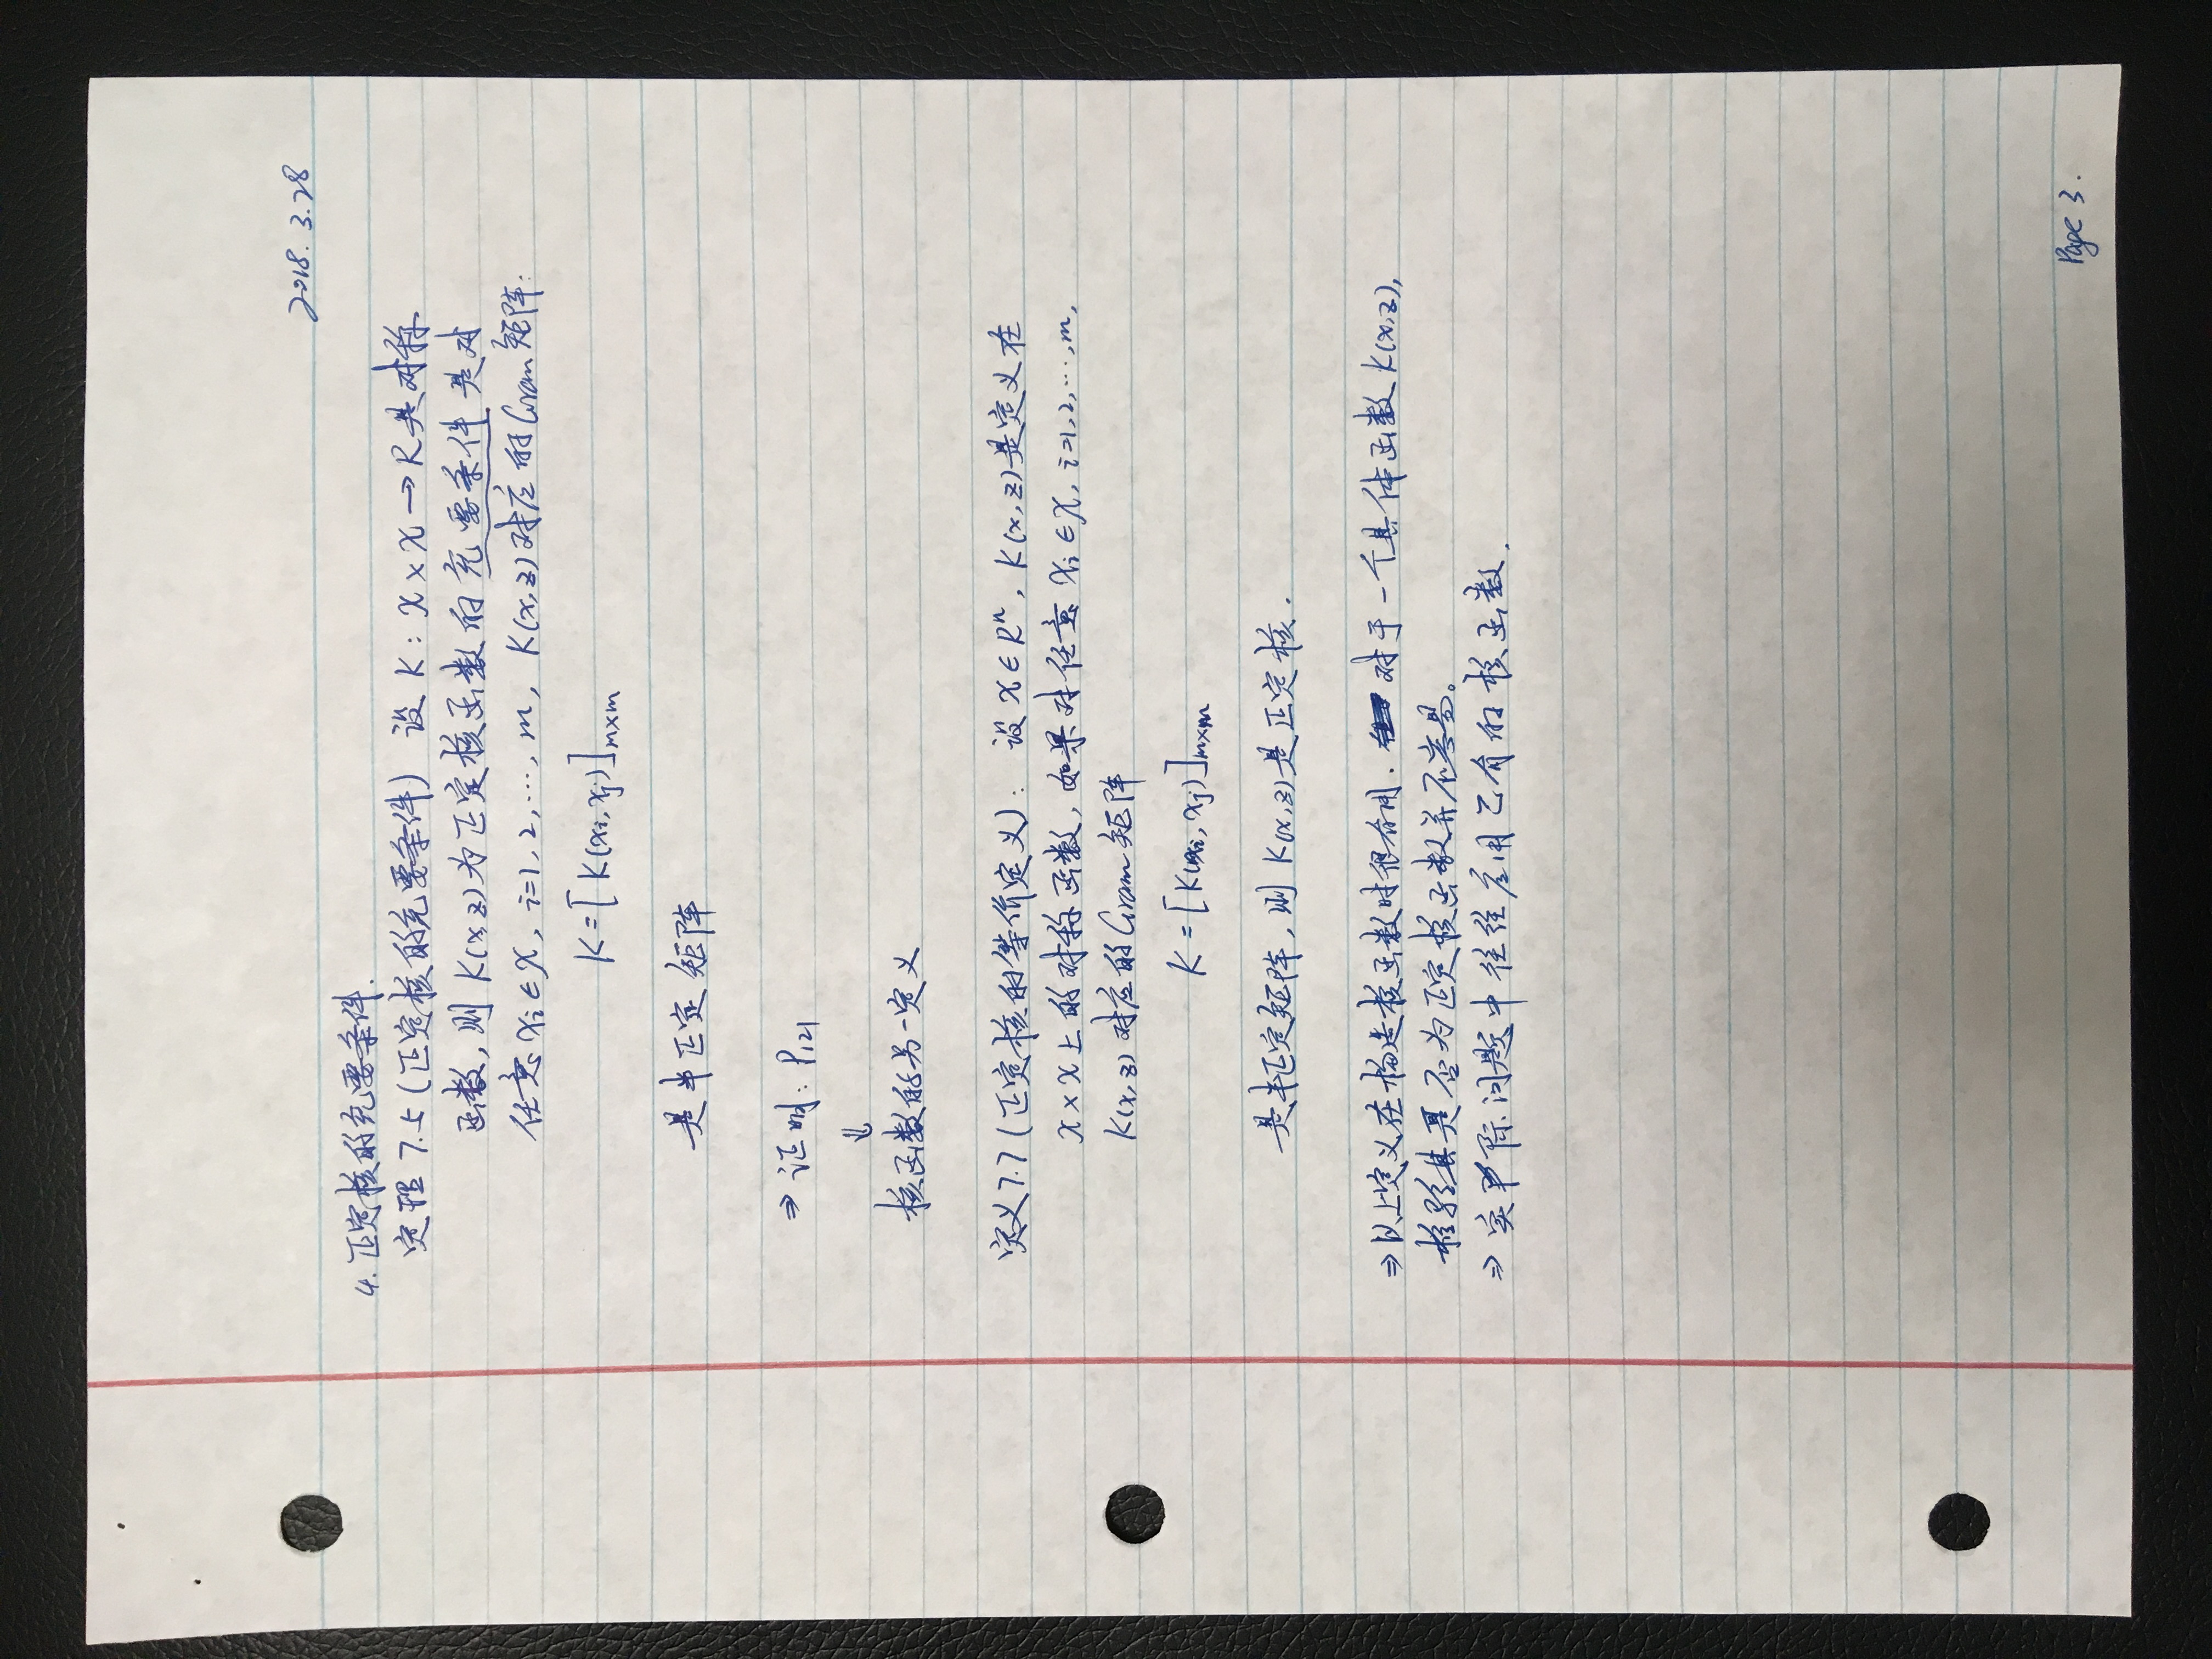 2018. 3.28
4. 正定核的充要条件.
定理 7.5 (正定核的充要条件) 设 K: X × X → R 是对称
函数, 则 K(x,z) 为正定核函数的充要条件是对
任意 xi ∈ X, i=1, 2, ..., m, K(x,z) 对应的 Gram 矩阵:
K = [K(xi, xj)]m×m
是半正定矩阵
⇒ 证明: P121
⇓
核函数的另一定义
定义 7.7 (正定核的等价定义): 设 X ∈ Rⁿ, K(x,z) 是定义在
X × X 上的对称函数, 如果对任意 xi ∈ X, i=1,2,...,m,
K(x,z) 对应的 Gram 矩阵
K = [K(xi, xj)]m×m
是半正定矩阵, 则 K(x,z) 是正定核.
⇒ 以上定义在构造核函数时很有用. 对于一个具体函数 K(x,z),
检验其是否为正定核函数并不容易。
⇒ 实际问题中往往应用已有的核函数.
Page 3.